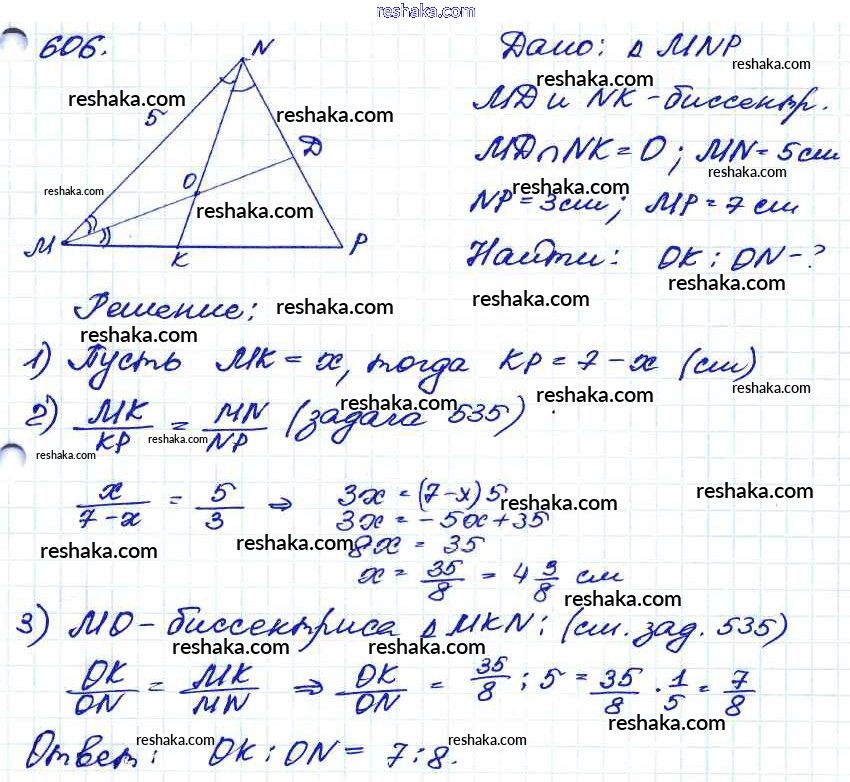 reshaka.com
606.
N
Дано: △ MNP
reshaka.com
reshaka.com
reshaka.com
MD и NK - биссектр.
5
reshaka.com
D
MD∩NK = O; MN = 5 см
O
reshaka.com
reshaka.com
reshaka.com
reshaka.com
NP = 3 см; MP = 7 см
M
K
P
Найти: OK : ON - ?
reshaka.com
Решение:
reshaka.com
reshaka.com
reshaka.com
reshaka.com
1) Пусть MK = x, тогда KP = 7 - x (см)
reshaka.com
reshaka.com
reshaka.com
2) MK/KP = MN/NP (задача 535)
reshaka.com
reshaka.com
reshaka.com
x/(7-x) = 5/3 ⇒ 3x = (7-x)5
reshaka.com
reshaka.com
3x = -5x + 35
reshaka.com
reshaka.com
8x = 35
x = 35/8 = 4 3/8 см
reshaka.com
3) MO - биссектриса △ MKN: (см. зад. 535)
reshaka.com
reshaka.com
reshaka.com
OK/ON = MK/MN ⇒ OK/ON = 35/8 : 5 = 35/8 · 1/5 = 7/8
reshaka.com
reshaka.com
reshaka.com
Ответ: OK : ON = 7 : 8.